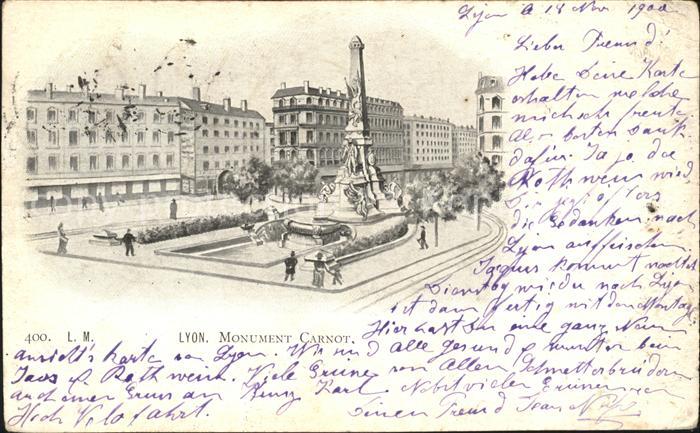 Lyon d 18 Nov 1900
Lieber Freund!
Habe Deine Karte
erhalten welche
mich sehr freute
Also besten Dank
dafür. Ja ja die
Rothwein wird
die Gedanken nach
Lyon auffrischen
Jaques kommt nächst
Dienstag wieder nach Lyon
ist dann fertig mit der Montage
400. L. M. LYON. MONUMENT CARNOT.
Hier hast Du eine ganz Neu
ansicht's karte von Lyon. Wir sind alle gesund & munter beim
Jass & Rothwein. Viele Grüsse von Allen Schmetterbrüdern
auch einen Gruss an Karl. Nebst vielen Grüssen von
Hoch Velofahrt. Deinen Freund